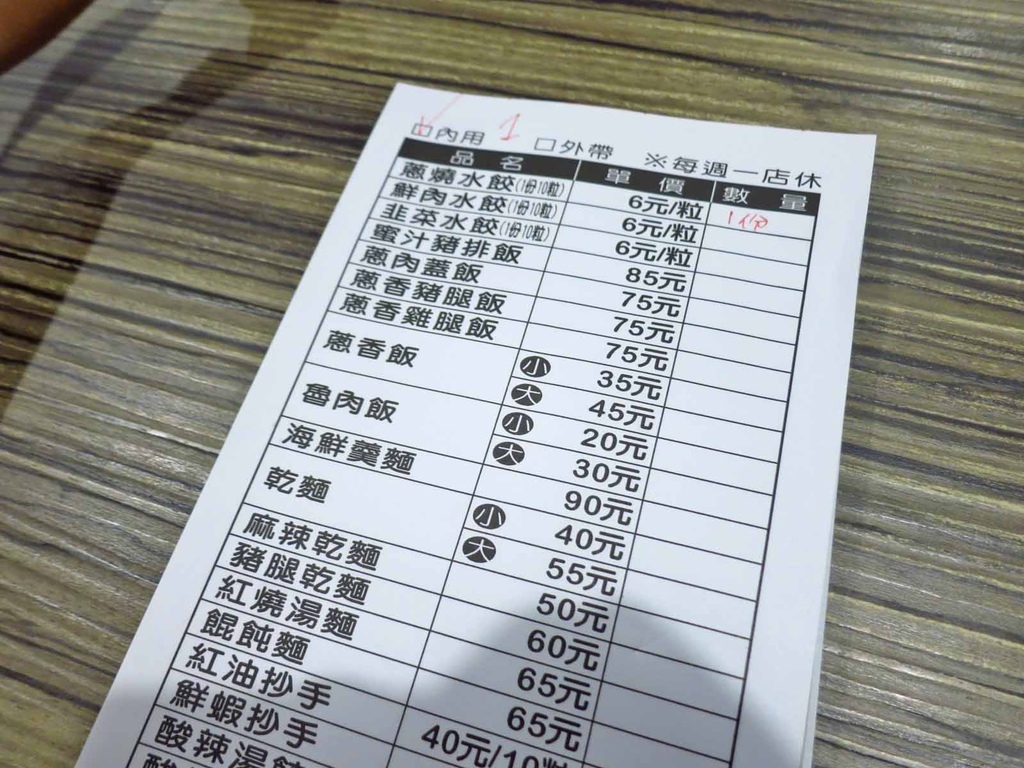 ☑內用 1 □外帶 ※每週一店休
品名 單價 數量
蔥燒水餃(1份10粒) 6元/粒 1份
鮮肉水餃(1份10粒) 6元/粒
韭菜水餃(1份10粒) 6元/粒
蜜汁豬排飯 85元
蔥肉蓋飯 75元
蔥香豬腿飯 75元
蔥香雞腿飯 75元
蔥香飯 小 35元
大 45元
魯肉飯 小 20元
大 30元
海鮮羹麵 90元
乾麵 小 40元
大 55元
麻辣乾麵 50元
豬腿乾麵 60元
紅燒湯麵 65元
餛飩麵 65元
紅油抄手 40元/10粒
鮮蝦抄手
酸辣湯餃